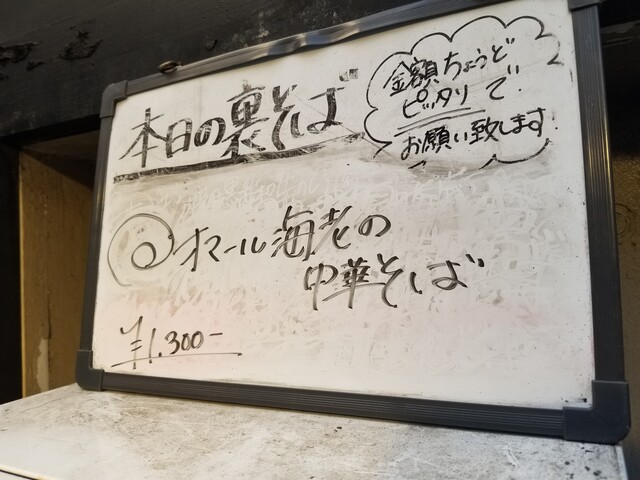 本日の裏そば
金額ちょうど
ピッタリで
お願い致します!
オマール海老の
中華そば
¥1.300-